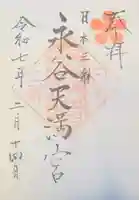 奉拝
日本三躰
永谷天満宮
令和七年 二月 十四日